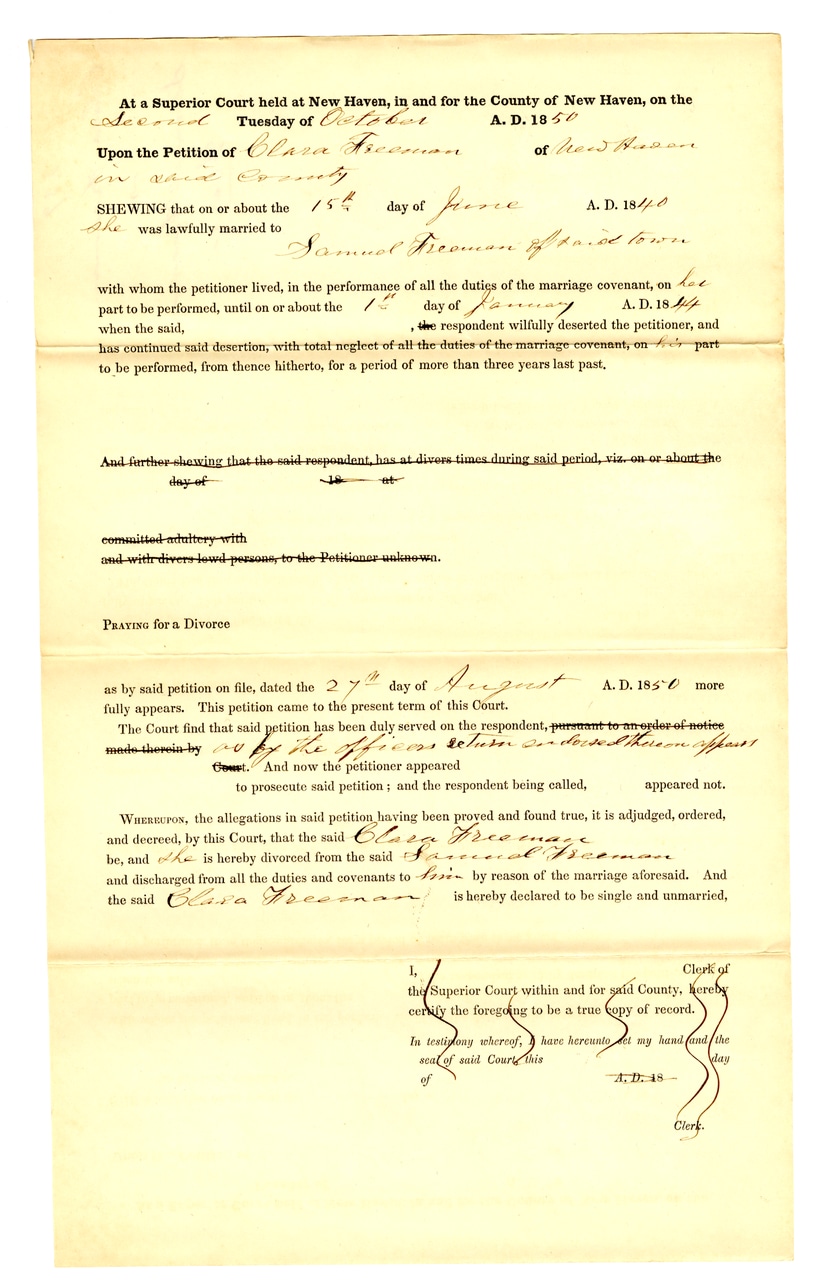 At a Superior Court held at New Haven, in and for the County of New Haven, on the
Second Tuesday of October A. D. 1850
Upon the Petition of Clara Freeman of New Haven
in said County
SHEWING that on or about the 15th day of June A. D. 1840
she was lawfully married to
Samuel Freeman of said town
with whom the petitioner lived, in the performance of all the duties of the marriage covenant, on her
part to be performed, until on or about the 1st day of January A. D. 1844
when the said, , the respondent wilfully deserted the petitioner, and
has continued said desertion, with total neglect of all the duties of the marriage covenant, on his part
to be performed, from thence hitherto, for a period of more than three years last past.
And further shewing that the said respondent, has at divers times during said period, viz. on or about the
day of 18 at
committed adultery with
and with divers lewd persons, to the Petitioner unknown.
PRAYING for a Divorce
as by said petition on file, dated the 27th day of August A. D. 1850 more
fully appears. This petition came to the present term of this Court.
The Court find that said petition has been duly served on the respondent, pursuant to an order of notice
made therein by as by the officers return endorsed thereon appears
Court. And now the petitioner appeared
to prosecute said petition; and the respondent being called, appeared not.
WHEREUPON, the allegations in said petition having been proved and found true, it is adjudged, ordered,
and decreed, by this Court, that the said Clara Freeman
be, and she is hereby divorced from the said Samuel Freeman
and discharged from all the duties and covenants to him by reason of the marriage aforesaid. And
the said Clara Freeman is hereby declared to be single and unmarried,
I, Clerk of
the Superior Court within and for said County, hereby
certify the foregoing to be a true copy of record.
In testimony whereof, I have hereunto set my hand and the
seal of said Court, this day
of A. D. 18
Clerk.